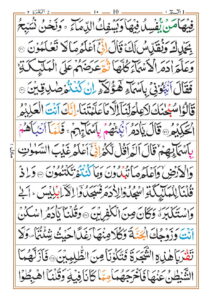 فِيهَا مَن يُفْسِدُ فِيهَا وَيَسْفِكُ الدِّمَآءَ ۚ وَنَحْنُ نُسَبِّحُ
بِحَمْدِكَ وَنُقَدِّسُ لَكَ ؕ قَالَ اِنِّیْٓ اَعْلَمُ مَا لَا تَعْلَمُوْنَ
وَعَلَّمَ اٰدَمَ الْاَسْمَآءَ كُلَّهَا ثُمَّ عَرَضَهُمْ عَلَی الْمَلٰٓئِكَةِ ۙ
فَقَالَ اَنْۢبِـُٔوْنِیْ بِاَسْمَآءِ هٰٓؤُلَآءِ اِنْ كُنْتُمْ صٰدِقِیْنَ
قَالُوْا سُبْحٰنَكَ لَا عِلْمَ لَنَآ اِلَّا مَا عَلَّمْتَنَا ؕ اِنَّكَ اَنْتَ الْعَلِیْمُ
الْحَكِیْمُ قَالَ یٰٓاٰدَمُ اَنْۢبِئْهُمْ بِاَسْمَآئِهِمْ ۚ فَلَمَّآ اَنْۢبَاَهُمْ
بِاَسْمَآئِهِمْ ۙ قَالَ اَلَمْ اَقُلْ لَّكُمْ اِنِّیْٓ اَعْلَمُ غَیْبَ السَّمٰوٰتِ
وَالْاَرْضِ ۙ وَاَعْلَمُ مَا تُبْدُوْنَ وَمَا كُنْتُمْ تَكْتُمُوْنَ وَاِذْ
قُلْنَا لِلْمَلٰٓئِكَةِ اسْجُدُوْا لِاٰدَمَ فَسَجَدُوْٓا اِلَّآ اِبْلِیْسَ ؕ اَبٰی
وَاسْتَكْبَرَ ٭ وَكَانَ مِنَ الْكٰفِرِیْنَ وَقُلْنَا یٰٓاٰدَمُ اسْكُنْ
اَنْتَ وَزَوْجُكَ الْجَنَّةَ وَكُلَا مِنْهَا رَغَدًا حَیْثُ شِئْتُمَا ۪ وَلَا
تَقْرَبَا هٰذِهِ الشَّجَرَةَ فَتَكُوْنَا مِنَ الظّٰلِمِیْنَ فَاَزَلَّهُمَا
الشَّیْطٰنُ عَنْهَا فَاَخْرَجَهُمَا مِمَّا كَانَا فِیْهِ ۪ وَقُلْنَا اهْبِطُوْا